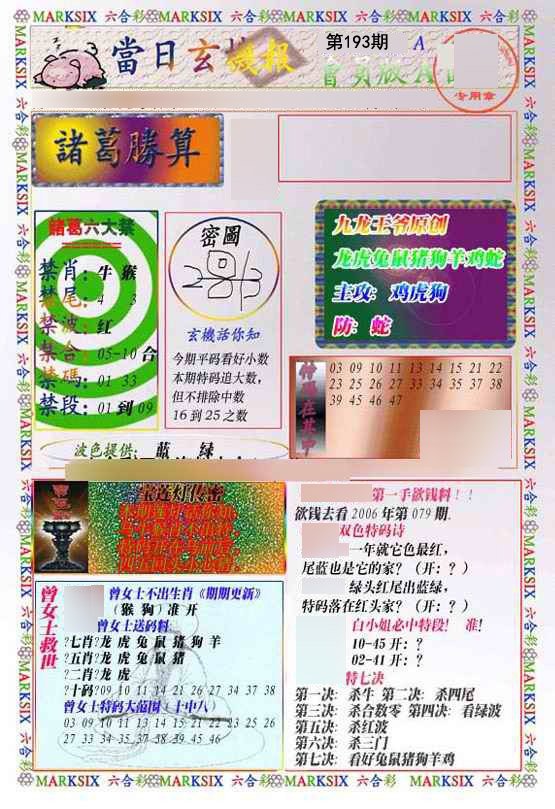 MARKSIX 六合彩 MARKSIX 六合彩 MARKSIX 六合彩 MARKSIX 六合彩
當日玄機報
第193期
A
會員版A面
专用章
諸葛勝算
諸葛六大禁
禁肖：牛 猴
禁尾：4 3
禁波：红
禁合：05-10 合
禁碼：01 33
禁段：01 到 09
密圖
玄機話你知
今期平码看好小数
本期特码追大数，
但不排除中数
16 到 25 之数
九龙王爷原创
龙虎兔鼠猪狗羊鸡蛇
主攻：鸡虎狗
防：蛇
特碼在其中
03 09 10 11 13 14 15 21 22
23 25 26 27 33 34 35 37 38
39 45 46 47
波色提供：蓝 绿
宝莲灯传密
曾女士救世
曾女士不出生肖《期期更新》
（猴 狗）准 开
曾女士送码料：
?七肖?龙 虎 兔 鼠 猪 狗 羊
?五肖?龙 虎 兔 鼠 猪
?二肖?龙 虎
?十码?09 10 11 14 21 26 27 34 37 38
曾女士特码大范围（十中八）
03 09 10 11 13 14 15 21 22 23 25 26
27 33 34 35 37 38 39 45 46
第一手欲钱料！！
欲钱去看 2006 年第 079 期.
双色特码诗
一年就它色最红，
尾蓝也是它的家？（开：？）
绿头红尾出蓝绿，
特码落在红头家？（开：？）
白小姐必中特段！ 准！
10-45 开：？
02-41 开：？
特七决
第一决：杀牛 第二决：杀四尾
第三决：杀合数零 第四决：看绿波
第五决：杀红波
第六决：杀三门
第七决：看好兔鼠猪狗羊鸡
MARKSIX 六合彩 MARKSIX 六合彩 MARKSIX 六合彩 MARKSIX 六合彩